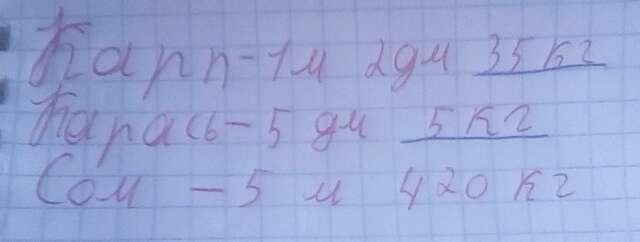 Карп - 1 м 2 дм 35 кг
Карась - 5 дм 5 кг
Сом - 5 м 420 кг